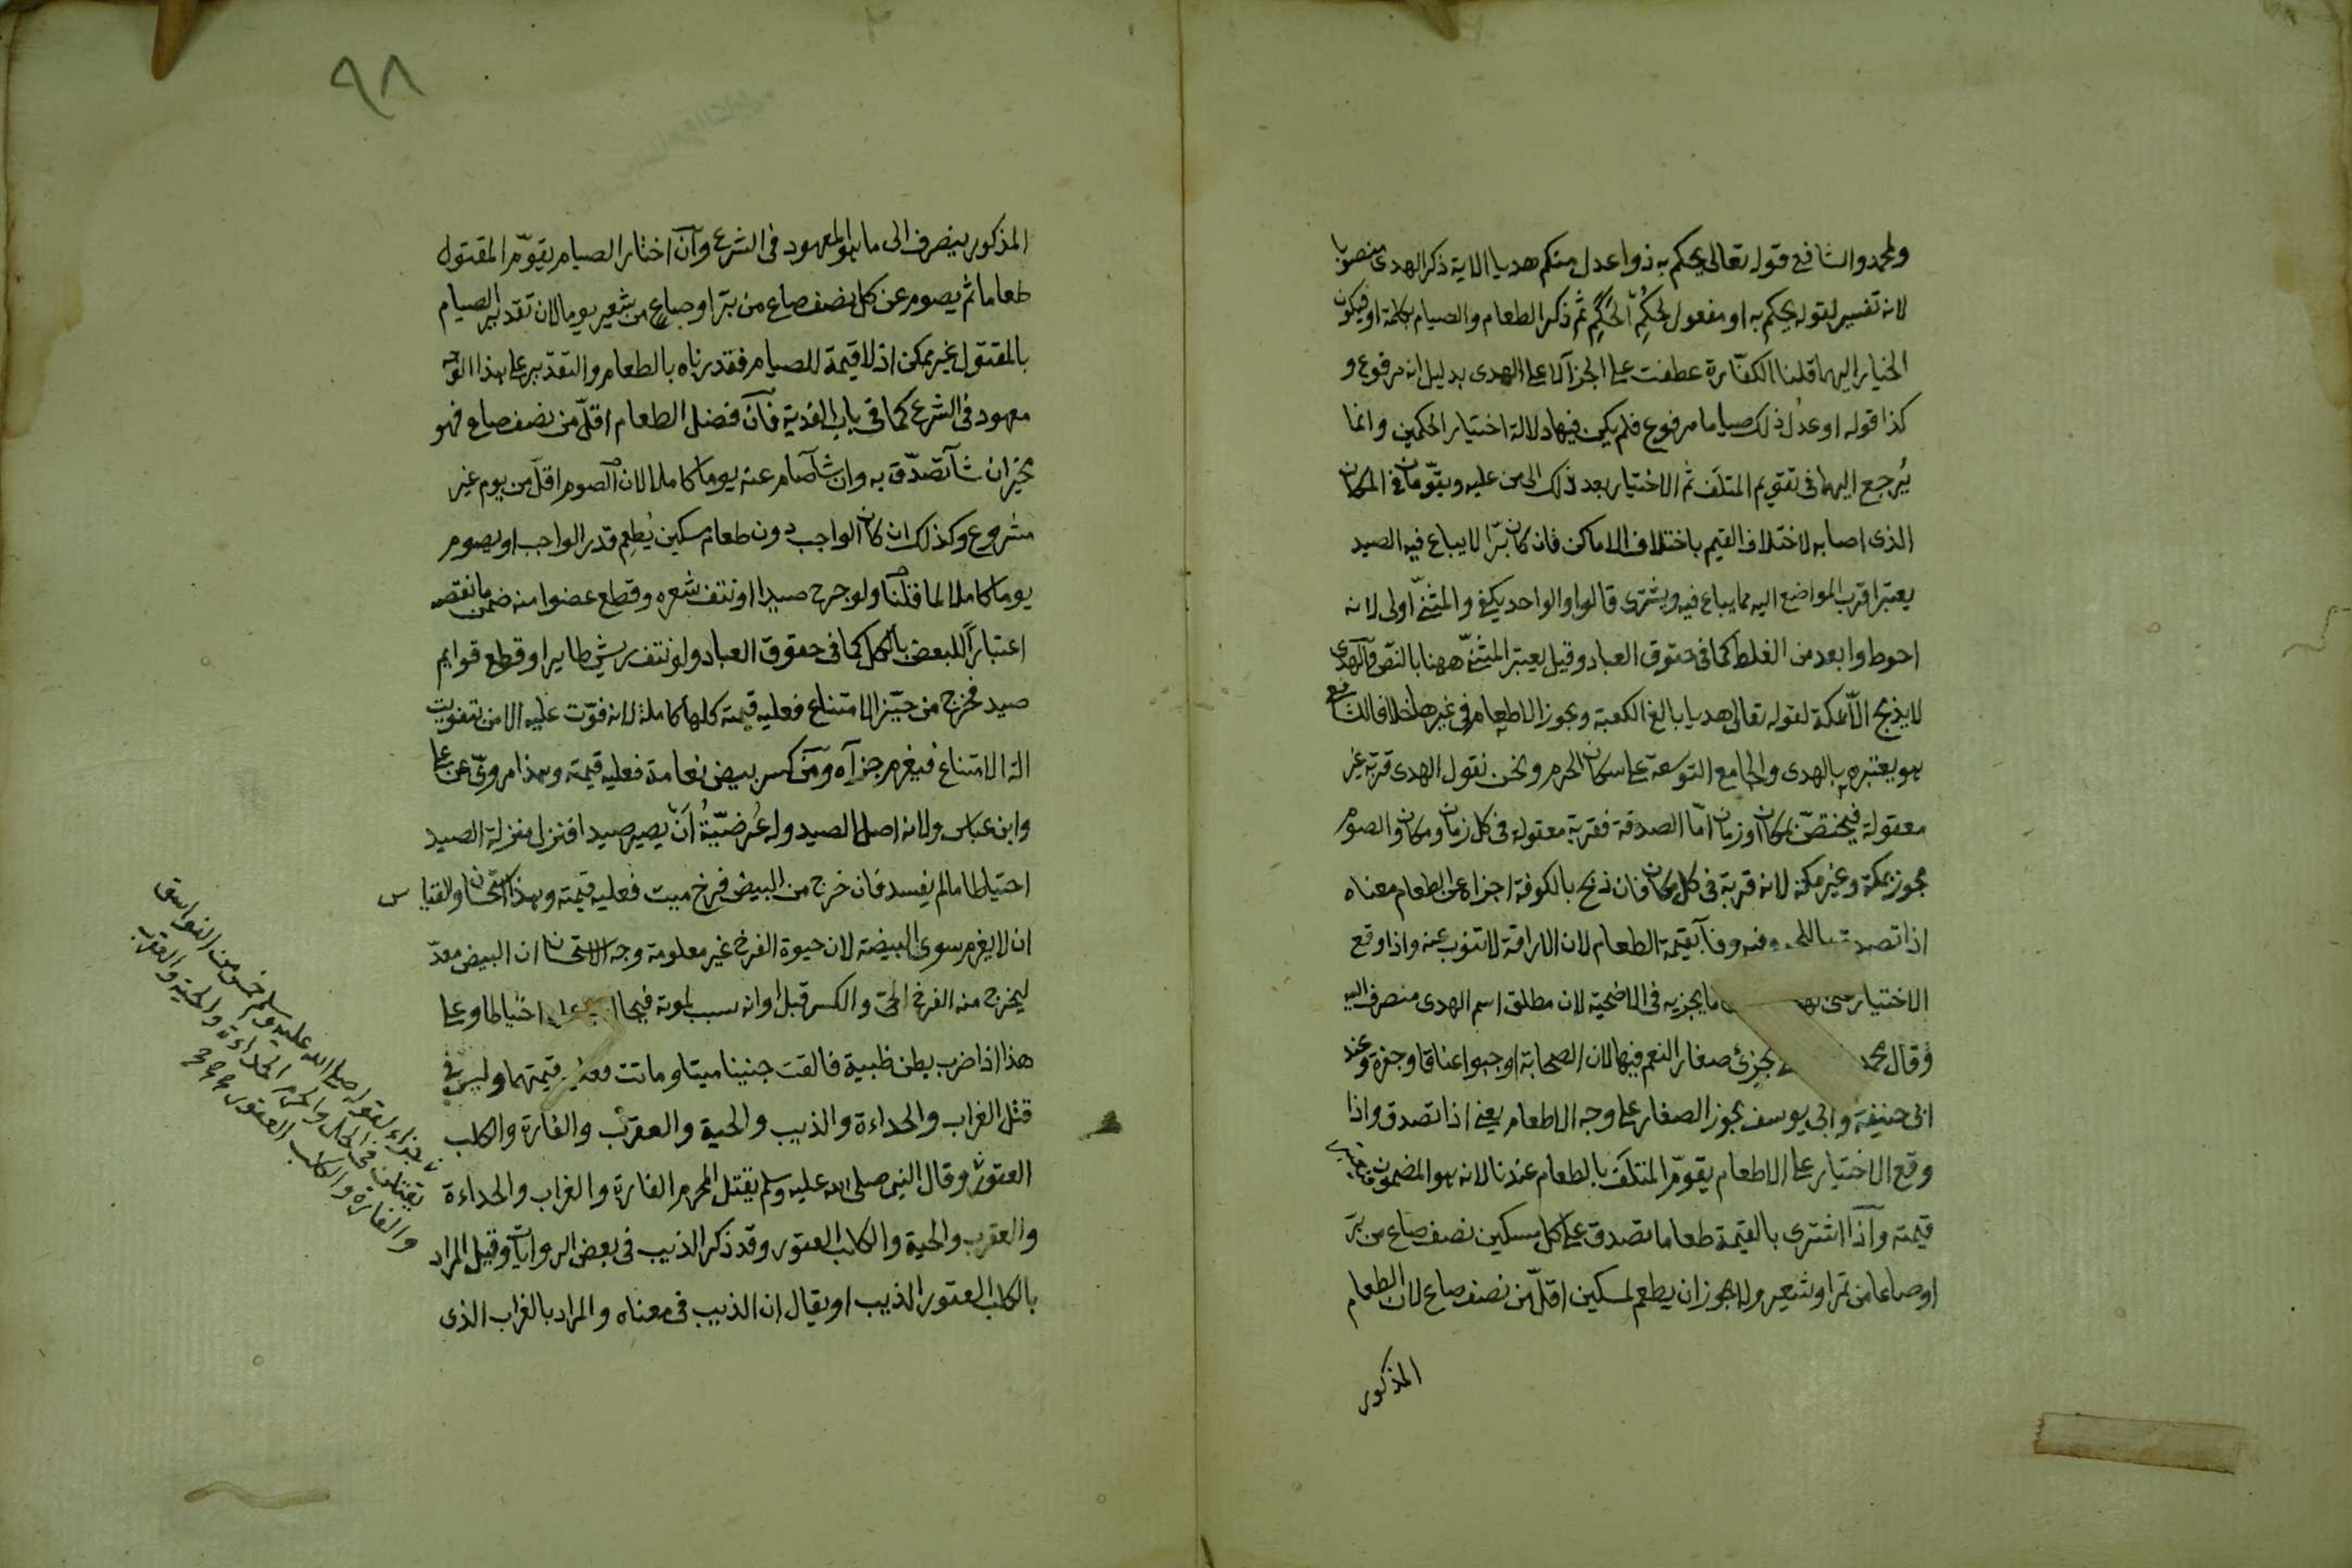 ولمحمد والشافعي قوله تعالى يحكم به ذوا عدل منكم هديا الاية ذكر الهدى منصوبا
لانه تفسير لقوله يحكم به او مفعول لحكم الحكم ثم ذكر الطعام والصيام بكلمة او فيكون
الخيار اليهما قلنا الكفارة عطفت على الجزآ لا على الهدى بدليل انه مرفوع و
كذا قوله او عدل ذلك صياما مرفوع فلم يكن فيها دلالة اختيار الحكمين وانما
يرجع اليهما فى تقويم المتلف ثم الاختيار بعد ذلك الى من عليه ويقومان فى المكان
الذى اصابه لاختلاف القيم باختلاف الاماكن فان كان برا لا يباع فيه الصيد
يعتبر اقرب المواضع اليه مما يباع فيه ويشترى قالوا والواحد يكفى والمثنى اولى لانه
احوط وابعد من الغلط كما فى حقوق العباد وقيل يعتبر المثنى ههنا بالنص والهدى
لا يذبح الا بمكة لقوله تعالى هديا بالغ الكعبة ويجوز الاطعام فى غيرها خلافا للشافعى
هو يعتبره بالهدى والجامع التوسعة على سكان الحرم ونحن نقول الهدى قربة غير
معقولة فيختص بمكان او زمان اما الصدقة فقربة معقولة فى كل زمان ومكان والصوم
يجوز بمكة وغير مكة لانه قربة فى كل مكان فان ذبح بالكوفة اجزاه عن الطعام معناه
اذا تصدق باللحم وفيه وفآ بقيمة الطعام لان الاراقة لا تنوب عنه واذا وقع
الاختيار على ما يجزيه فى الاضحية لان مطلق اسم الهدى منصرف اليه
وقال محمد يجزئ صغار النعم فيها لان الصحابة اوجبوا عناقا وجفرة وعند
ابى حنيفة وابى يوسف يجوز الصغار على وجه الاطعام يعنى اذا تصدق واذا
وقع الاختيار على الاطعام يقوم المتلف بالطعام عندنا لانه هو المضمون فيعتبر
قيمته وآذا اشترى بالقيمة طعاما تصدق على كل مسكين نصف صاع من بر
او صاعا من تمر او شعير ولا يجوز ان يطعم لمسكين اقل من نصف صاع لان الطعام
المذكور
٩٨
المذكور ينصرف الى ما هو المعهود فى الشرع وآن اختار الصيام يقوم المقتول
طعاما ثم يصوم عن كل نصف صاع من بر او صاع من شعير يوما لان تقدير الصيام
بالمقتول غير ممكن اذ لا قيمة للصيام فقدرناه بالطعام والتقدير على هذا الوجه
معهود فى الشرع كما فى باب الفدية فآن فضل الطعام اقل من نصف صاع فهو
مخير ان شآ تصدق به وان شآ صام عنه يوما كاملا لان الصوم اقل من يوم غير
مشروع وكذلك ان كان الواجب دون طعام مسكين يطعم قدر الواجب او يصوم
يوما كاملا لما قلنا ولو جرح صيدا او نتف شعره وقطع عضوا منه ضمن ما نقصه
اعتبارا للبعض بالكل كما فى حقوق العباد ولو نتف ريش طاير او قطع قوايم
صيد فخرج من حيز الامتناع فعليه قيمته كلها كاملة لانه فوت عليه الامن بتفويت
الة الامتناع فيغرم جزآه ومن كسر بيض نعامة فعليه قيمته وهذا مروى عن على
وابن عباس ولانه اصل الصيد وله عرضية ان يصير صيدا فنزل منزلة الصيد
احتياطا ما لم يفسد فان خرج من البيض فرخ ميت فعليه قيمته وهذا استحسان والقياس
ان لا يغرم سوى البيضة لان حيوة الفرخ غير معلومة وجه الاستحسان ان البيض معد
ليخرج منه الفرخ الحى والكسر قبل اوانه سبب لموته فيحال عليه احتياطا وعلى
هذا اذا ضرب بطن ظبية فالقت جنينا ميتا وماتت فعليه قيمتهما وليس فى
قتل الغراب والحداءة والذيب والحية والعقرب والفارة والكلب
العقور وقال النبى صلى الله عليه وسلم يقتل المحرم الفارة والغراب والحداءة
والعقرب والحية والكلب العقور وقد ذكر الذيب فى بعض الروايات وقيل المراد
بالكلب العقور الذيب او يقال ان الذيب فى معناه والمراد بالغراب الذى
جزاء لقوله صلى الله عليه وسلم خمس من الفواسق
تقتلن فى الحل والحرم الحداءة والحية والعقرب
والفارة والكلب العقور